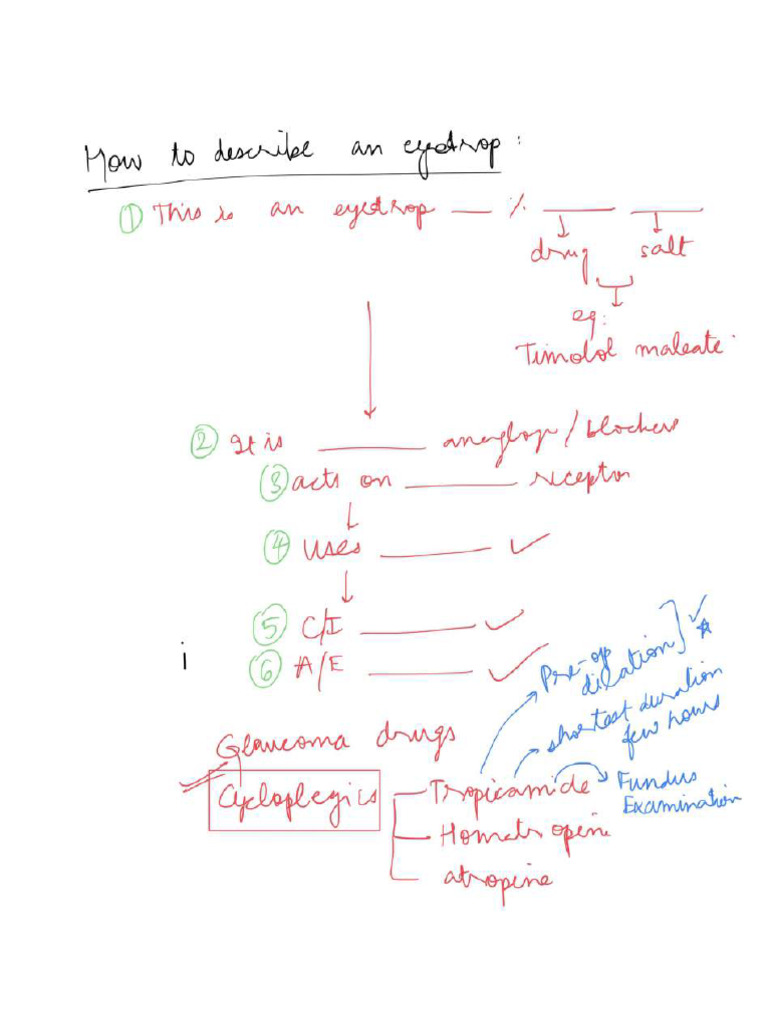 How to describe an eyedrop:
① This is an eyedrop __ % ____ ____
drug salt
eg:
Timolol maleate
② It is ______ / blockers
③ acts on ______ receptor
④ Uses ______ ✓
⑤ C/I ______ ✓
⑥ A/E ______ ✓
i
Pre-op
dilation
shortest duration
few hours
Glaucoma drugs
Cycloplegics
Tropicamide
Fundus
Examination
Homatropine
atropine